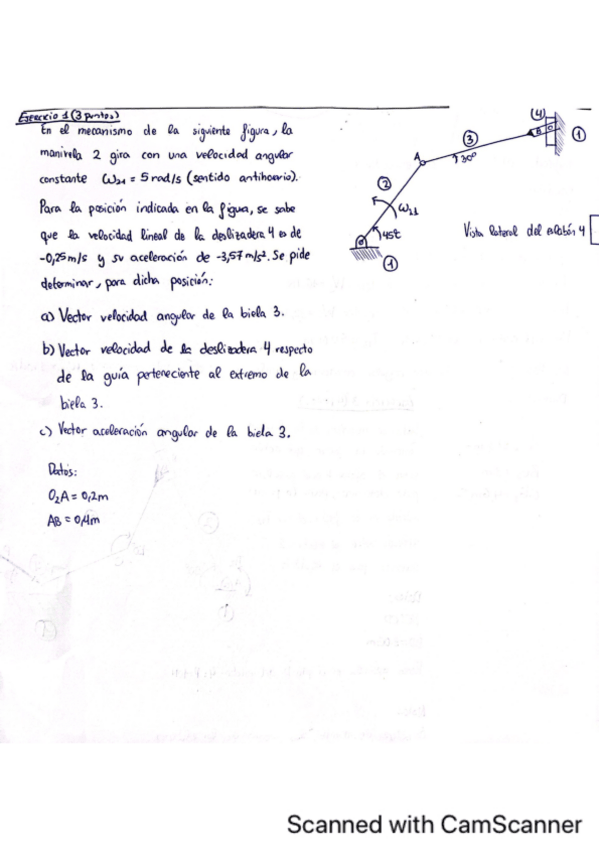 Ejercicio 1 (3 puntos)
En el mecanismo de la siguiente figura, la
manivela 2 gira con una velocidad angular
constante ω21 = 5 rad/s (sentido antihorario).
Para la posición indicada en la figua, se sabe
que la velocidad lineal de la deslizadera 4 es de
-0,25m/s y su aceleración de -3,57m/s². Se pide
determinar, para dicha posición:
a) Vector velocidad angular de la biela 3.
b) Vector velocidad de la deslizadera 4 respecto
de la guía perteneciente al extremo de la
biela 3.
c) Vector aceleración angular de la biela 3.
Datos:
O2A = 0,2m
AB = 0,4m
(4)
B
(1)
(3)
A
30º
(2)
ω21
45º
(1)
Vista lateral del eslabón 4
Scanned with CamScanner